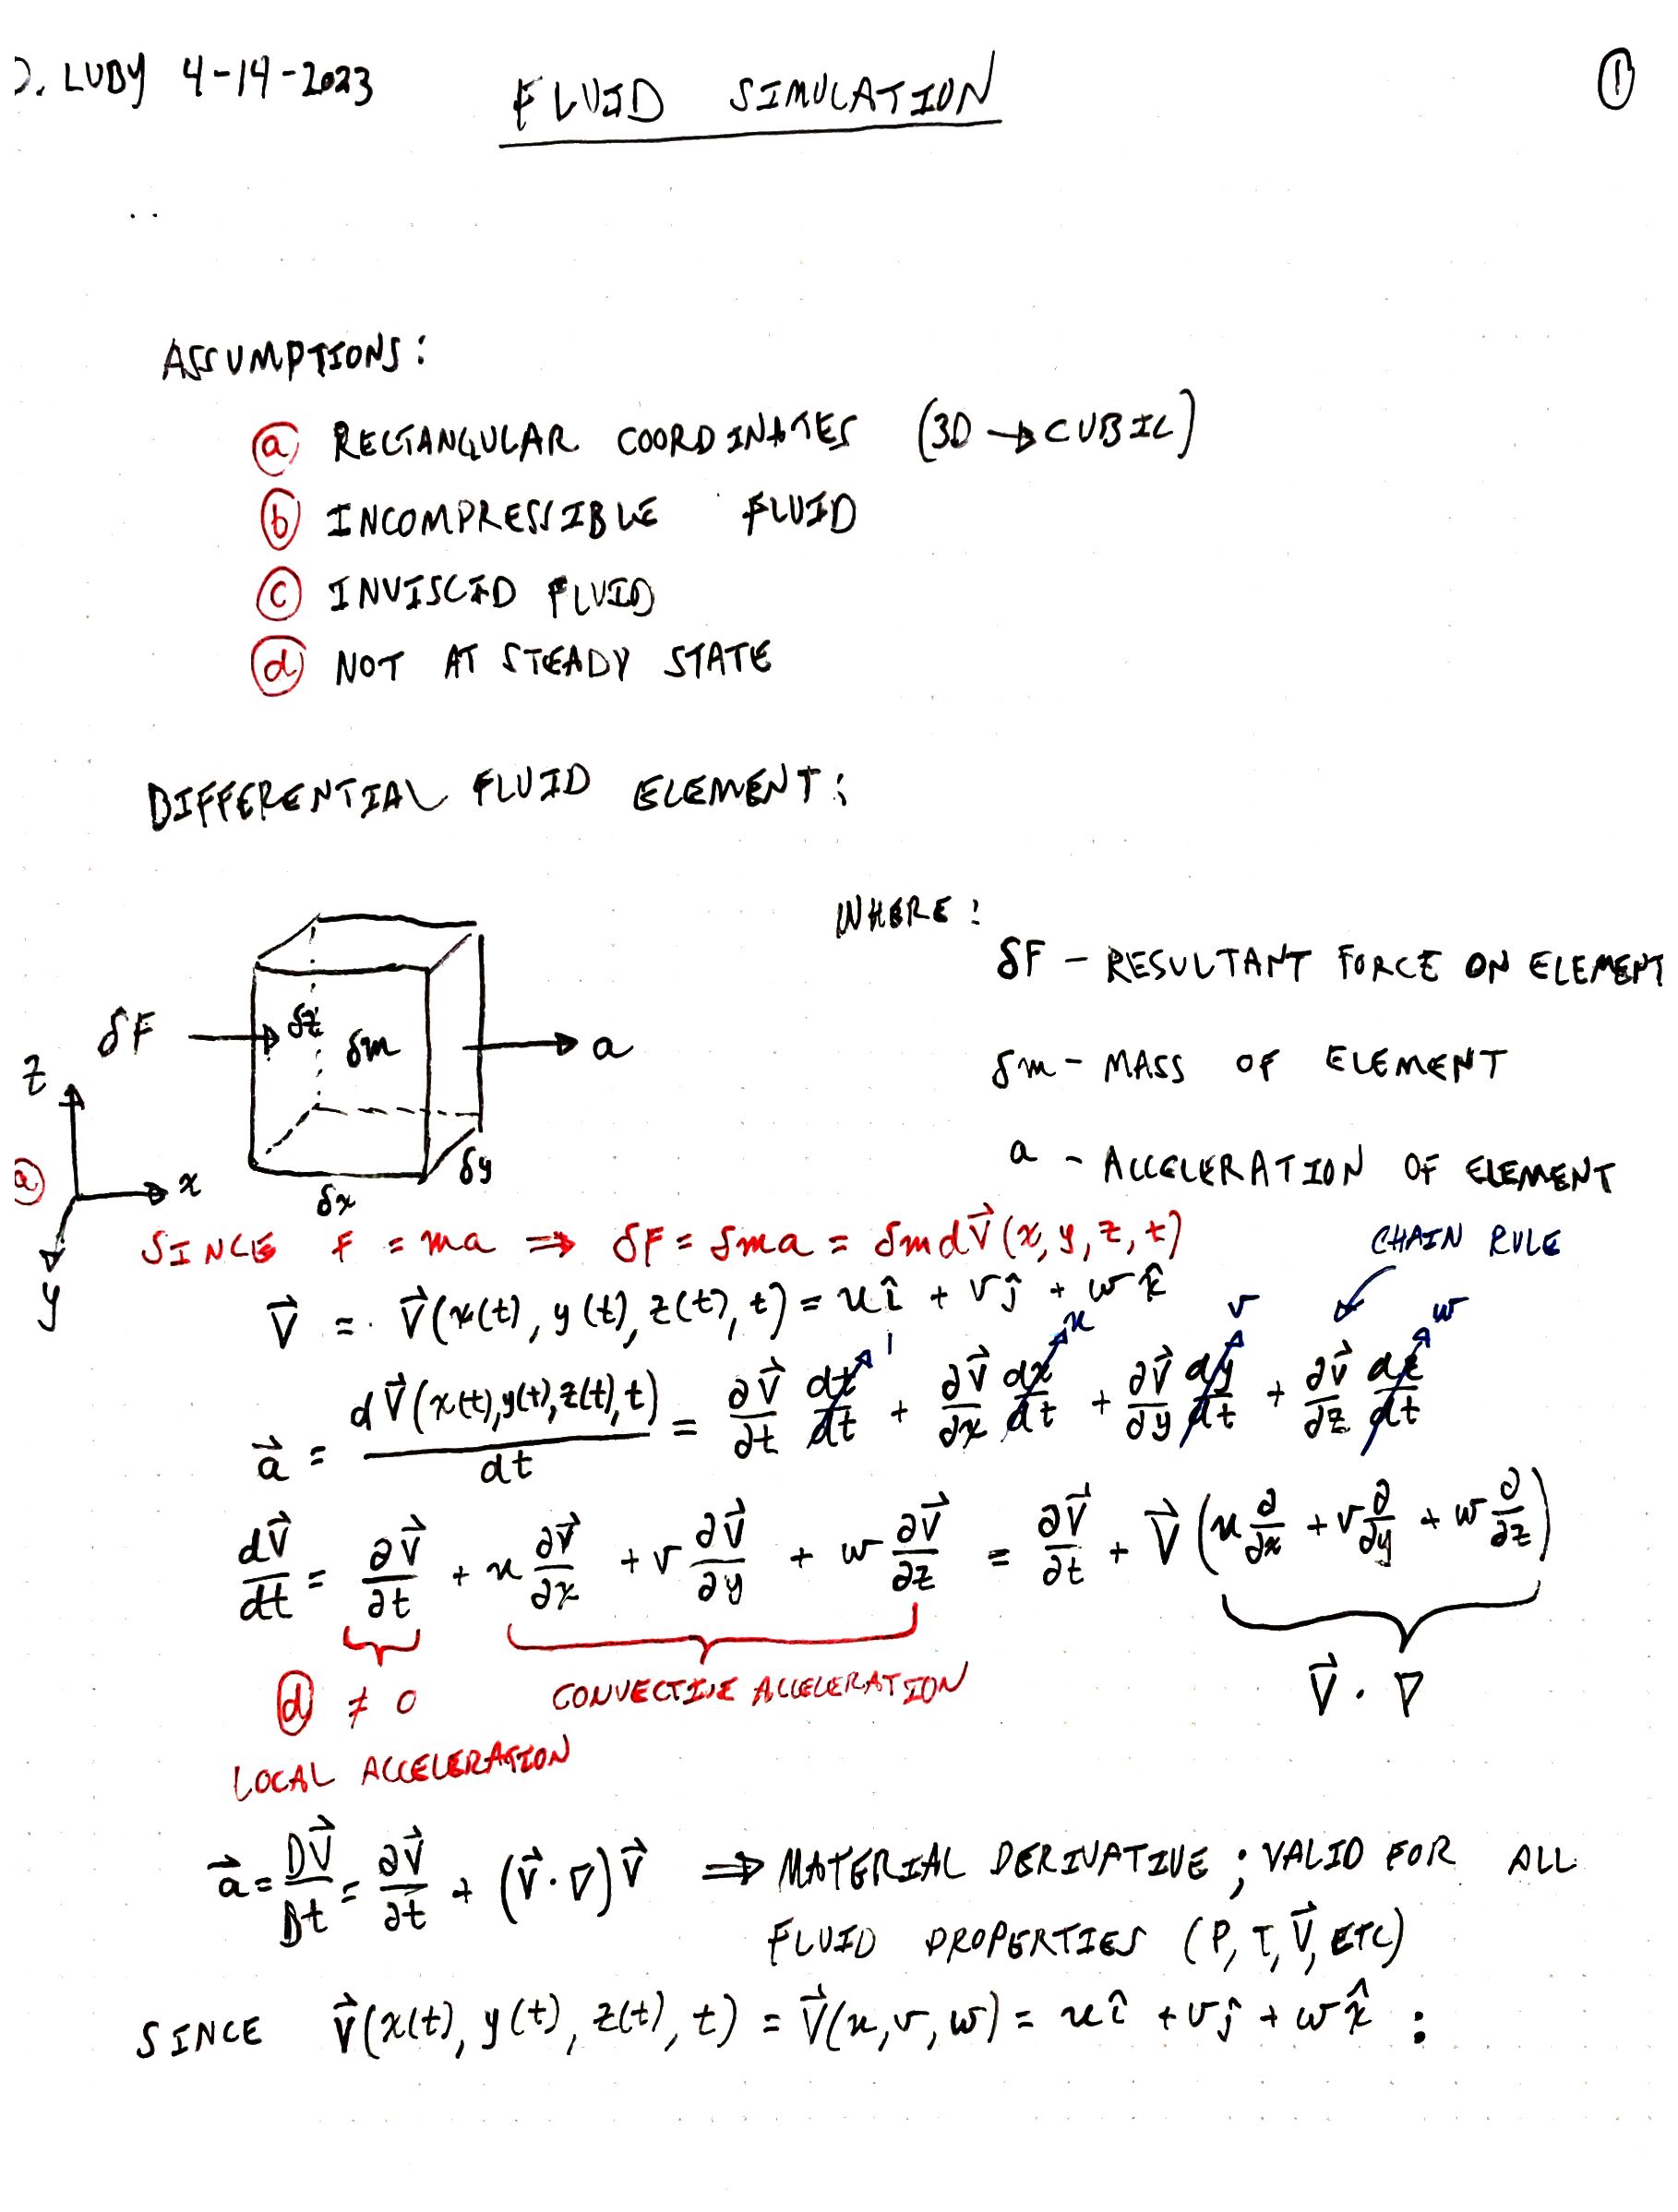 D. LUBY 4-14-2023
FLUID SIMULATION
①
ASSUMPTIONS:
ⓐ RECTANGULAR COORDINATES (3D → CUBIC)
ⓑ INCOMPRESSIBLE FLUID
ⓒ INVISCID FLUID
ⓓ NOT AT STEADY STATE
DIFFERENTIAL FLUID ELEMENT:
WHERE:
δF - RESULTANT FORCE ON ELEMENT
δm - MASS OF ELEMENT
a - ACCELERATION OF ELEMENT
δF → δz δm → a
z
ⓐ x
y
δx δy
SINCE F = ma ⇒ δF = δma = δmdV⃗(x, y, z, t)
CHAIN RULE
V⃗ = V⃗(x(t), y(t), z(t), t) = uî + vĵ + wk̂
a⃗ = dV⃗(x(t),y(t),z(t),t)/dt = ∂V⃗/∂t dt/dt 1 + ∂V⃗/∂x dx/dt u + ∂V⃗/∂y dy/dt v + ∂V⃗/∂z dz/dt w
dV⃗/dt = ∂V⃗/∂t + u ∂V⃗/∂x + v ∂V⃗/∂y + w ∂V⃗/∂z = ∂V⃗/∂t + V⃗ (u ∂/∂x + v ∂/∂y + w ∂/∂z)
ⓓ ≠ 0 CONVECTIVE ACCELERATION V⃗ · ∇
LOCAL ACCELERATION
a⃗ = DV⃗/Dt = ∂V⃗/∂t + (V⃗ · ∇)V⃗ ⇒ MATERIAL DERIVATIVE; VALID FOR ALL
FLUID PROPERTIES (P, T, V⃗, ETC)
SINCE V⃗(x(t), y(t), z(t), t) = V⃗(u, v, w) = uî + vĵ + wk̂ :